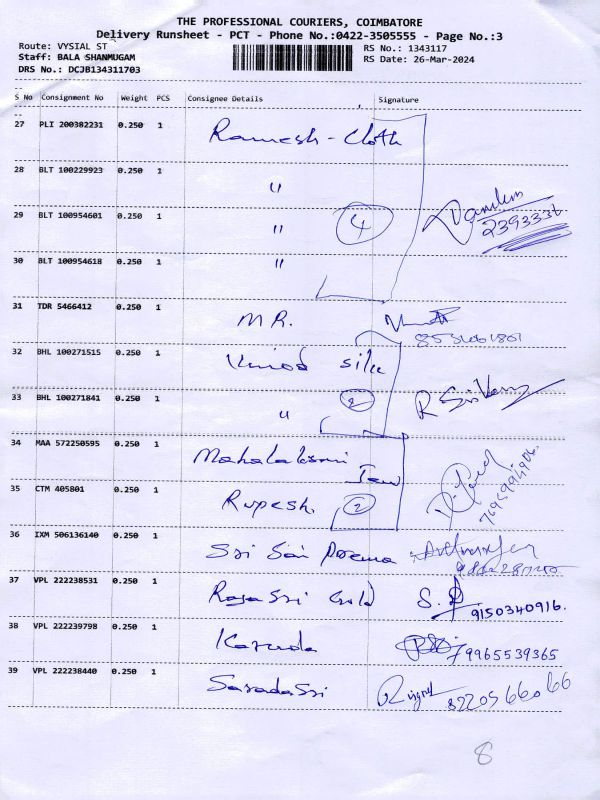 THE PROFESSIONAL COURIERS, COIMBATORE
Delivery Runsheet - PCT - Phone No.:0422-3505555 - Page No.:3
Route: VYSIAL ST RS No.: 1343117
Staff: BALA SHANMUGAM RS Date: 26-Mar-2024
DRS No.: DCJB134311703
S No Consignment No Weight PCS Consignee Details Signature
27 PLI 200382231 0.250 1 Ramesh - Cloth
28 BLT 100229923 0.250 1 "
29 BLT 100954601 0.250 1 " 4 2393336
30 BLT 100954618 0.250 1 "
31 TDR 5466412 0.250 1 M R.
32 BHL 100271515 0.250 1 silk
33 BHL 100271841 0.250 1 " 2 R
34 MAA 572250595 0.250 1 Mahalakshmi
35 CTM 405801 0.250 1 Rupesh. 2
36 IXM 506136140 0.250 1 Sri Sai Prema
37 VPL 222238531 0.250 1 Raja Sri Gold S. 9150340916.
38 VPL 222239798 0.250 1 Karuda 9965539365
39 VPL 222238440 0.250 1 SaradaSri 8220566066
8